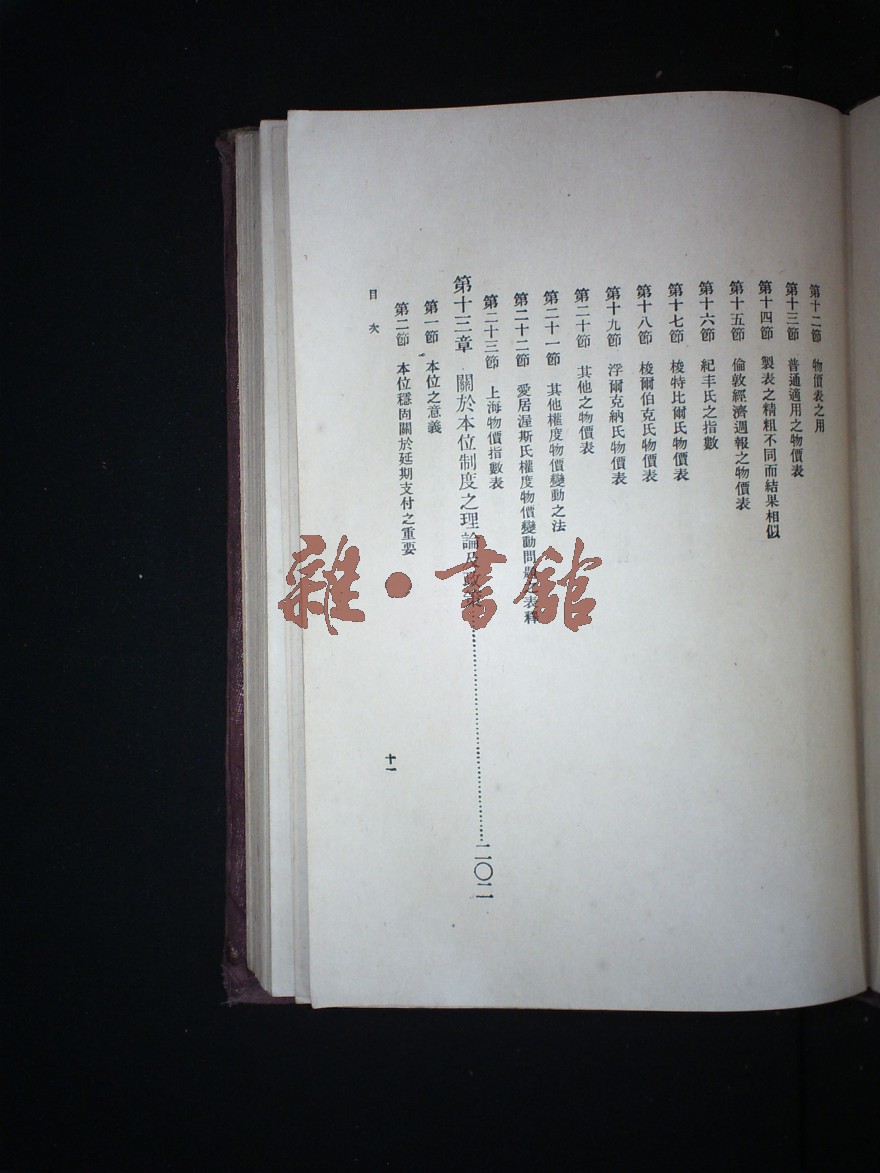 第十二節 物價表之用
第十三節 普通適用之物價表
第十四節 製表之精粗不同而結果相似
第十五節 倫敦經濟週報之物價表
第十六節 紀丰氏之指數
第十七節 梭特比爾氏物價表
第十八節 梭爾伯克氏物價表
第十九節 浮爾克納氏物價表
第二十節 其他之物價表
第二十一節 其他權度物價變動之法
第二十二節 愛居渥斯氏權度物價變動問題之表釋
第二十三節 上海物價指數表
第十三章 關於本位制度之理論及政策……二〇二
第一節 本位之意義
第二節 本位穩固關於延期支付之重要
目次
十一
雜·書館